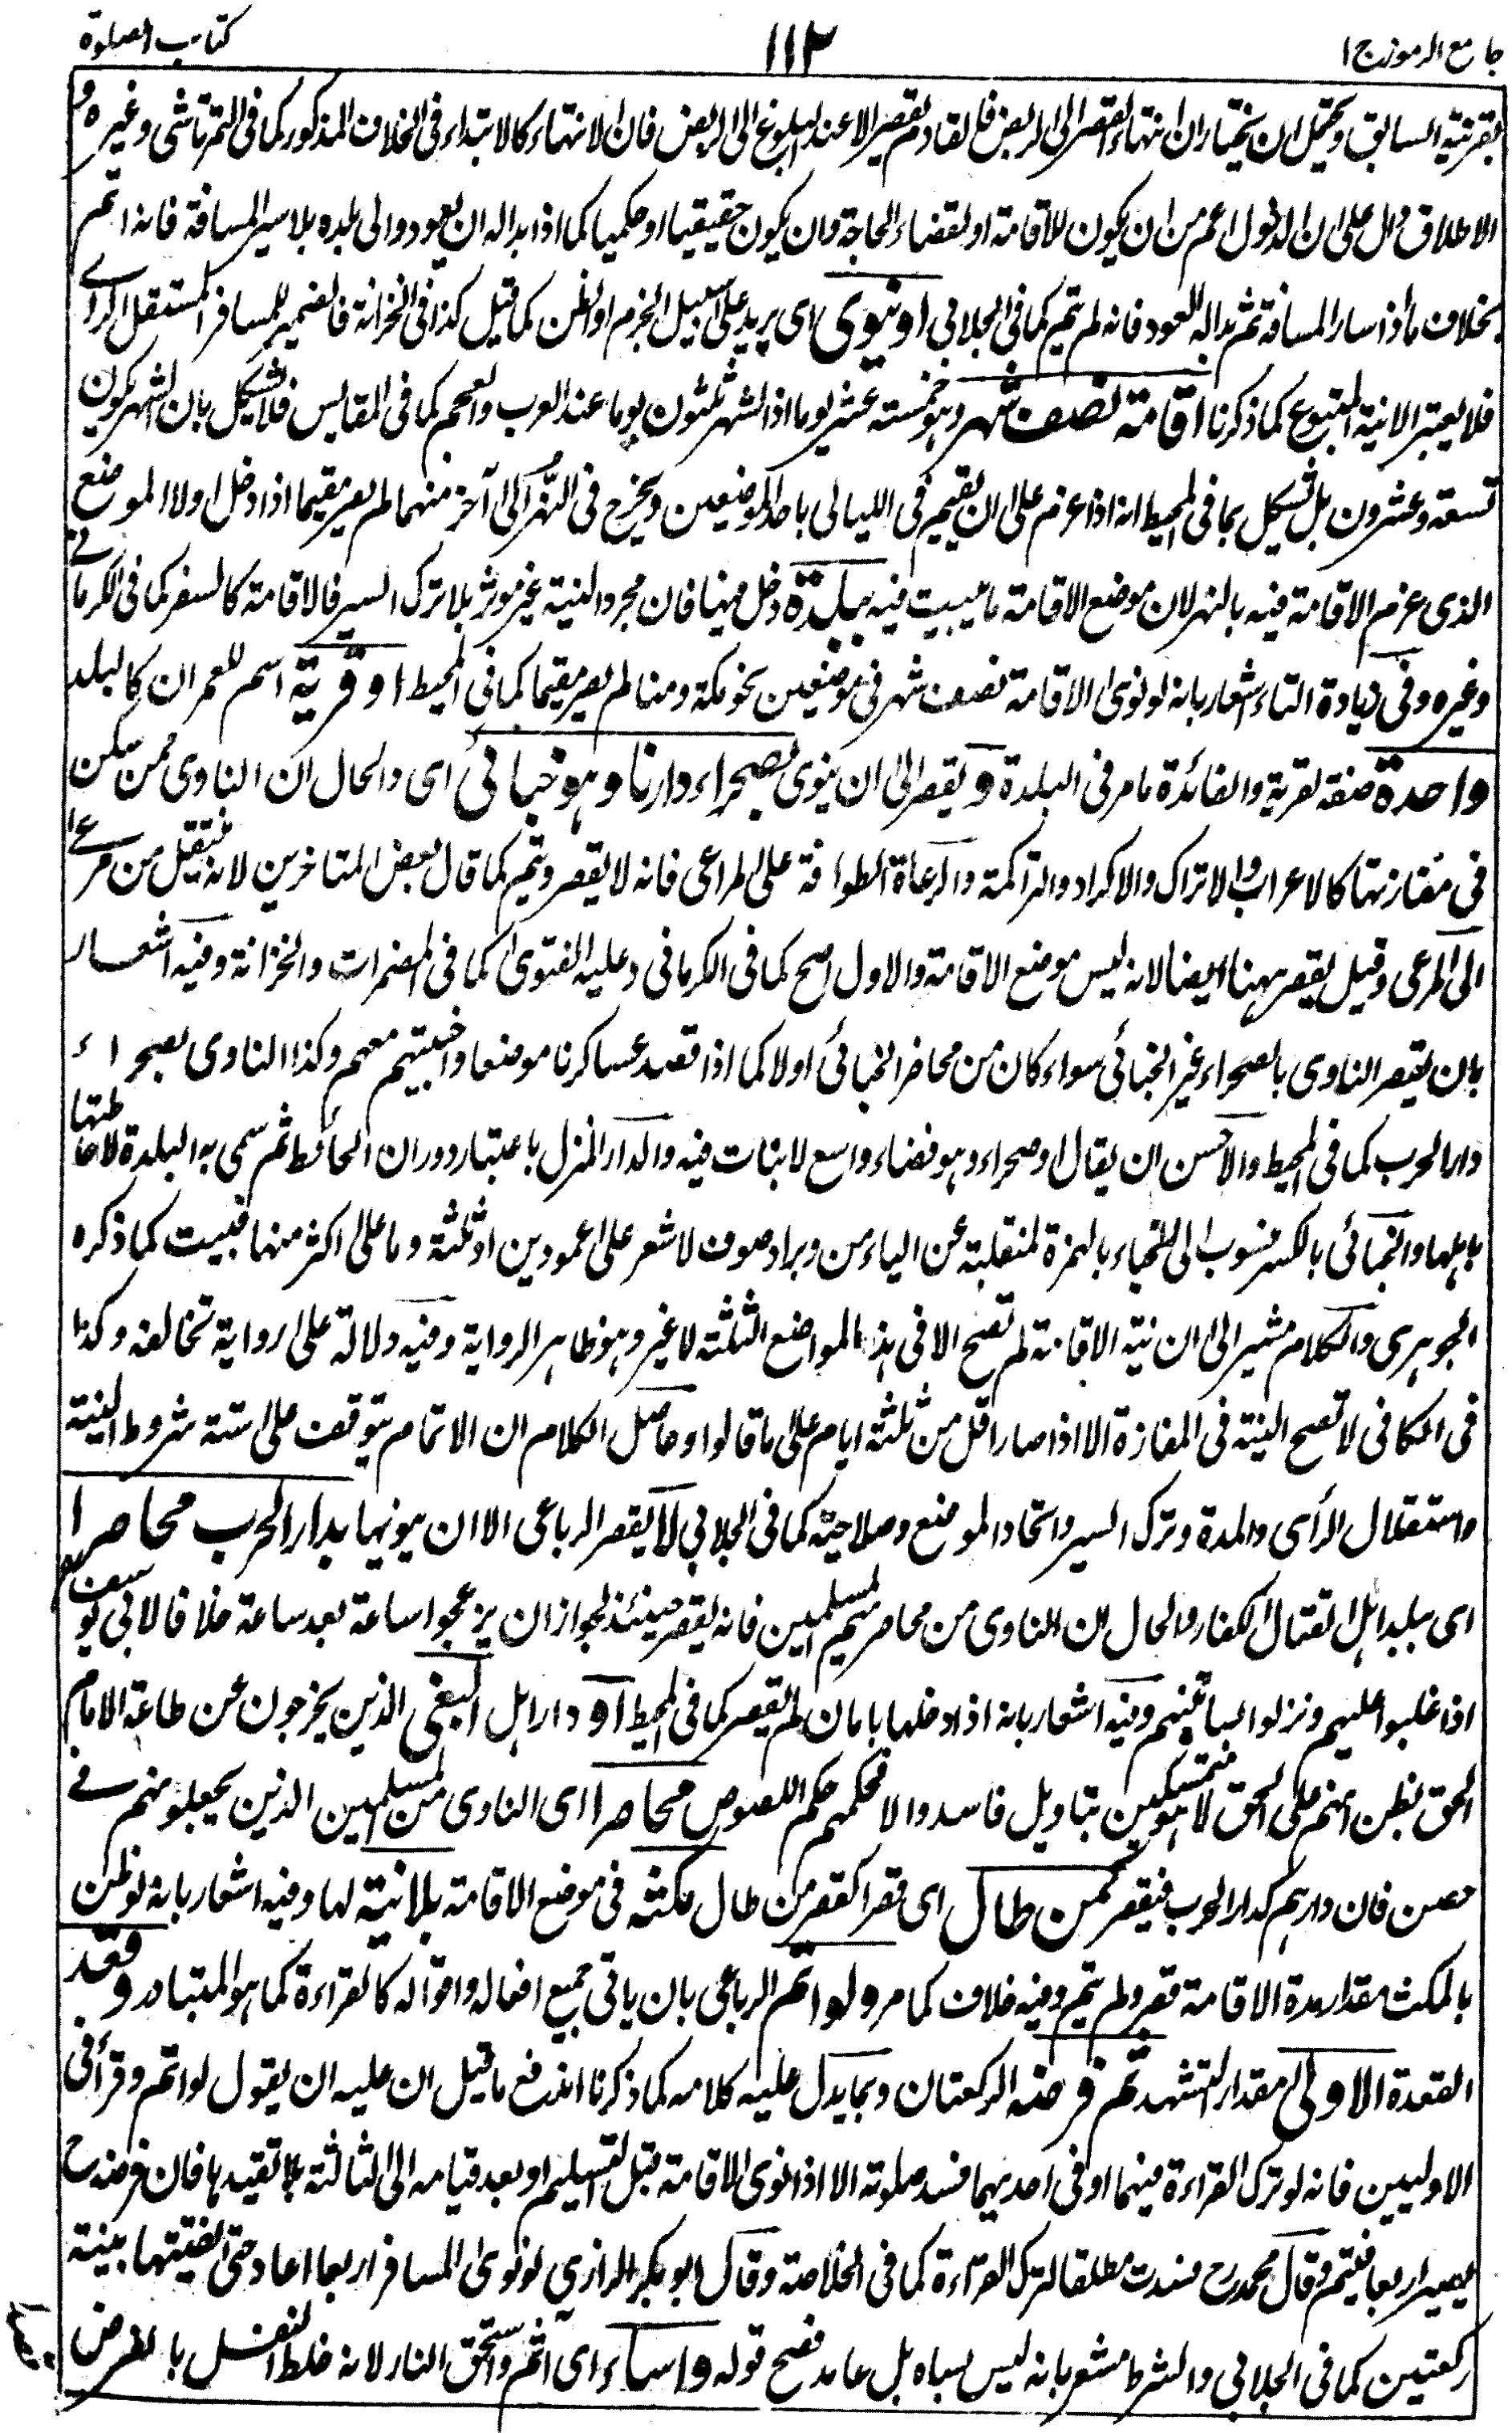 جامع الرموز ج ١
١١٢
كتاب الصلوة
بقرينة السابق ويحتمل ان يختار ان انتهاء القصر الى الربض فلقادم لم يقصر الا عند البلوغ الى الربض فان الانتهاء كالابتداء فى الخلاف المذكور كما فى التمرتاشى وغيره و
الاطلاق دال على ان الدخول اعم من ان يكون للاقامة او لقضاء الحاجة وان يكون حقيقيا او حكميا كما اذا بدا له ان يعود والى بلده بلا سير المسافة فانه اتم
بخلاف ما اذا سار المسافة ثم بدا له العود فانه لم يتم كما فى الجلابي او ينوى اى يريد على سبيل الجزم او الظن كما قيل كذا فى الخزانة فالضمير للمسافر المستقل الرأى
فلا يعتبر الا نية المتبوع كما ذكرنا اقامة نصف شهر وهو خمسة عشر يوما اذ الشهر ثلثون يوما عند العرب والعجم كما فى المقايس فلا يشكل بان الشهر يكون
تسعة وعشرون بل يشكل بما فى المحيط انه اذا عزم على ان يقيم فى الليالى باحد الموضعين ويخرج فى النهر الى آخر منهما لم يصر مقيما اذا دخل اولا الموضع
الذى عزم الاقامة فيه بالنهر لان موضع الاقامة ما يبيت فيه ببلدة دخل فيها فان مجرد النية غير موثر بلا ترك السير فالاقامة كالسفر كما فى الكرمانى
وغيره وفى زيادة التاء اشعار بانه لو نوى الاقامة نصف شهر فى موضعين نحو مكة ومنا لم يصر مقيما كما فى المحيط او قرية اسم للعمران كالبلد
واحدة صفة لقرية والفائدة ما مر فى البلدة ويقصر الى ان ينوى بصحراء دارنا وهو خبائى اى والحال ان الناوى ممن سكن
فى مفازتها كالاعراب والاتراك والاكراد والتراكمة والرعاة الطوافة على المراعى فانه لا يقصر ويتم كما قال بعض المتاخرين لانه ينتقل من مرعى
الى المرعى وقيل يقصر ههنا ايضا لانه ليس موضع الاقامة والاول اصح كما فى الكرمانى وعليه الفتوى كما فى المضمرات والخزانة وفيه اشعار
بان يقصر الناوى بالصحراء غير الخبائى سواء كان من محاضر الخبائى اولا كما اذا قصد عساكرنا موضعا واخبيتهم معهم وكذا الناوى بصحراء
دار الحرب كما فى المحيط والاحسن ان يقال او صحراء وهو فضاء واسع لا بنات فيه والدار المنزل باعتبار دوران الحائط ثم سمى به البلدة لاحاطتها
باهلها والخبائى بالكسر منسوب الى الخباء بالهمزة المنقلبة عن الياء من وبر او صوف لا شعر على عمودين او ثلثة وما على اكثر منها فبيت كما ذكره
الجوهرى والكلام مشير الى ان نية الاقامة لم تصح الا فى هذه المواضع الثلثة لا غير وهو ظاهر الرواية وفيه دلالة على رواية تخالفه وكذا
فى الكافى لا تصح النية فى المفازة الا اذا صار اقل من ثلثة ايام على ما قالوا وحاصل الكلام ان الاتمام يتوقف على ستة شروط النية
واستقلال الرأى والمدة وترك السير واتحاد الموضع وصلاحيته كما فى الجلابي لا يقصر الرباعى الا ان ينويها بدار الحرب محاصرا
اى ببلد اهل القتال الكفار والحال ان الناوى من محاصريهم المسلمين فانه يقصر حينئذ لجواز ان يزعجوا ساعة بعد ساعة خلافا لابى يوسف رح
اذا غلبوا عليهم ونزلوا بساتينهم وفيه اشعار بانه اذا دخلها بامان لم يقصر كما فى المحيط او دار اهل البغى الذين يخرجون عن طاعة الامام
الحق بظن انهم على الحق لا هو متمسكين بتاويل فاسد والا فحكمهم حكم اللصوص محاصرا اى الناوى من المسلمين الذين يجعلونهم فى
حصن فان دارهم كدار الحرب فيقصر كمن طال اى قصرا كقصر من طال مكثه فى موضع الاقامة بلا نية لها وفيه اشعار بانه لو ظن
بالمكث مقدار مدة الاقامة قصر ولم يتم وفيه خلاف كما مر ولو اتم الرباعى بان ياتى جميع افعاله واقواله كالقراءة كما هو المتبادر وقعد
القعدة الاولى مقدار التشهد تم فرضه الركعتان وبما يدل عليه كلامه كما ذكرنا اندفع ما قيل ان عليه ان يقول لو اتم وقرأ فى
الاوليين فانه لو ترك القراءة فيهما او فى احديهما فسد صلوته الا اذا نوى الاقامة قبل التسليم او بعد قيامه الى الثالثة بلا تقيدها فان فرضه ح
يصير اربعا فيتم وقال محمد رح فسدت مطلقا لترك القراءة كما فى الخلاصة وقال ابو بكر الرازى لو نوى المسافر اربعا اعاد حتى بنية
ركعتين كما فى الجلابي والشرط مشعر بانه ليس بساه بل عامد فصح قوله واساء اى اثم واستحق النار لانه خلط النفل بالفرض